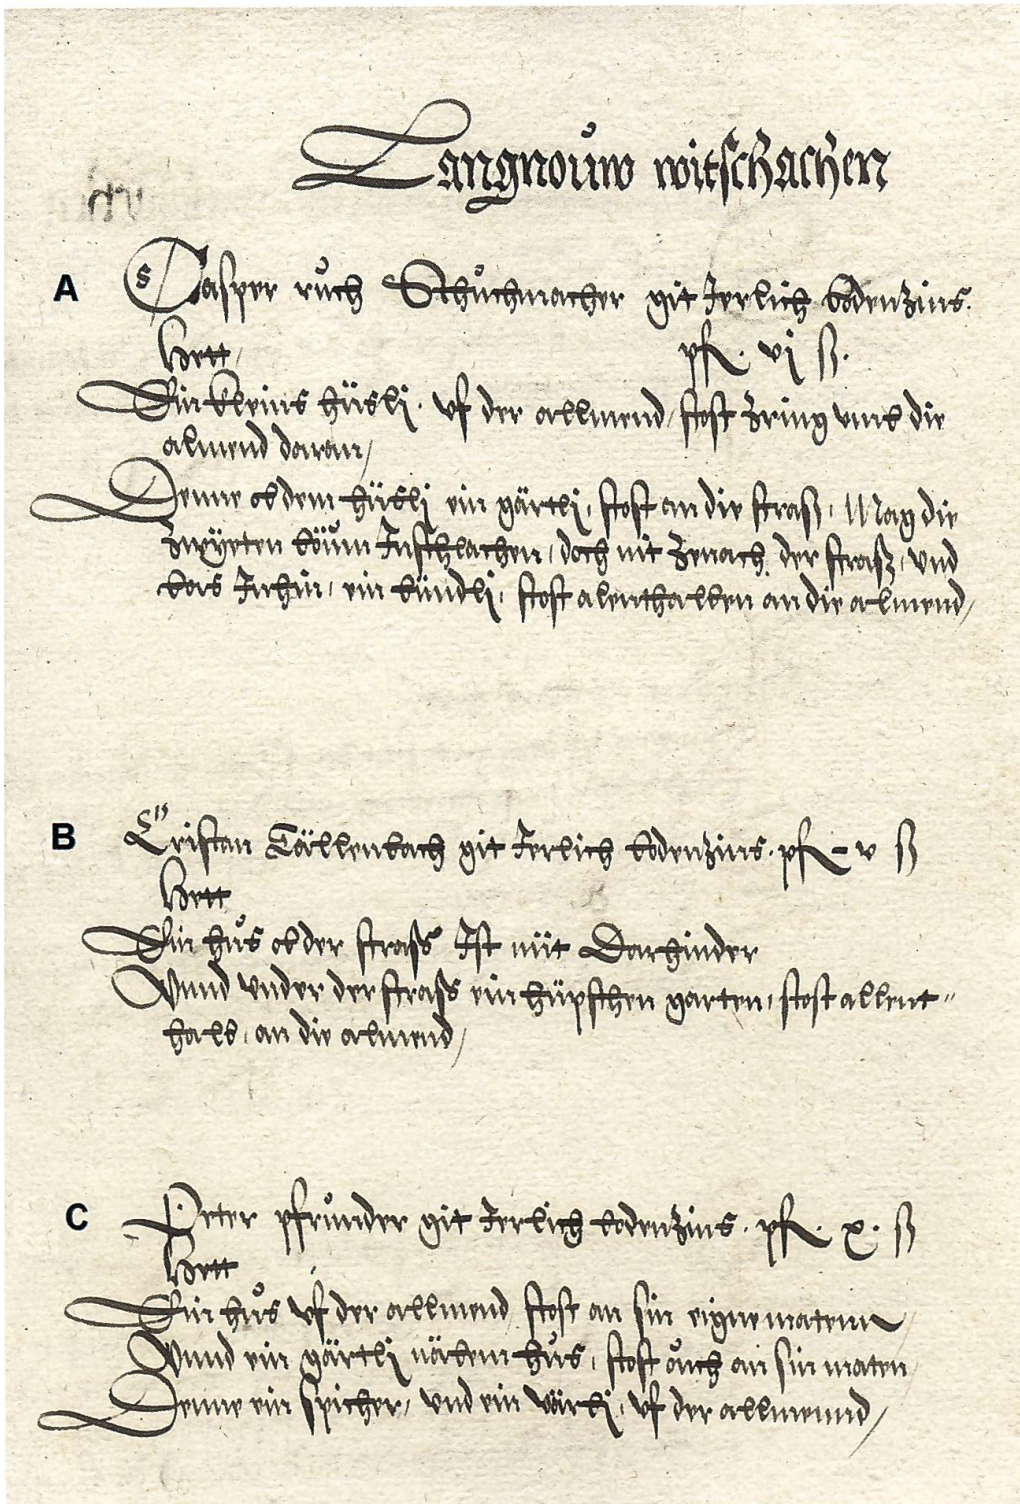 Langnouw witschachen
A Casper růch Schůchmacher git Jerlich bodenzins.
Hett / pf. vj ß.
Ein kleins hüsli. uf der allmend / stost zring umb die
almend daran /
Denne ob dem hüsli ein gärtli, stost an die straß, Mag die
zwÿeten böüm Inschlachen, doch nit zenach der straß, und
bas Inhin, ein bündli, stost alenthalben an die almend /
B Cristan Tällenbach git Jerlich bodenzins. pf - v ß
Hett
Ein hůs ob der strass Ist nüt Darhinder
Unnd under der strass ein hüpschen garten, stost allent"
halb, an die almend /
C Peter pfrůnder git Jerlich bodenzins. pf. x. ß
Hett
Ein hůs uf der allmend stost an sin eigne maten
Unnd ein gärtli näbem hůs, stost ouch an sin maten
Denne ein spicher, und ein wärli, uf der allmennd /